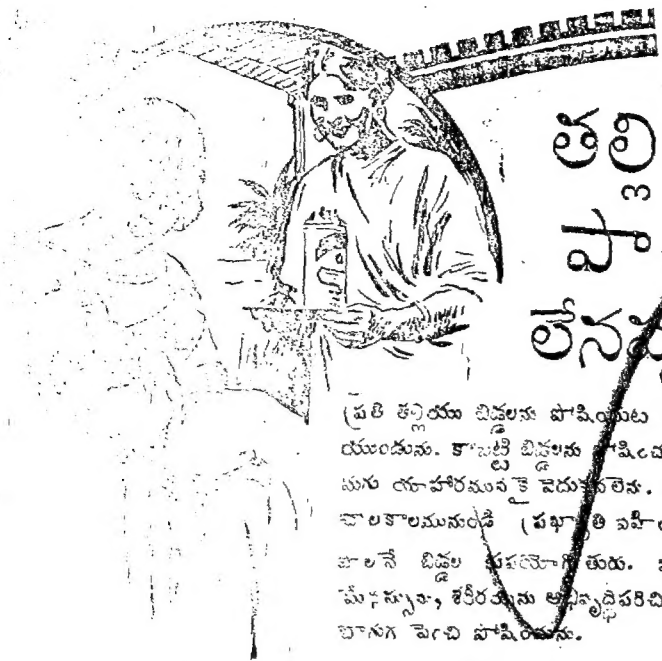 తల్లి
పా
లేన
ప్రతి తల్లియు బిడ్డలను పోషియుట
యుండును. కాబట్టి బిడ్డలను పోషించు
నుగు యాహారమునకై వెదుకవలెను.
చాలకాలమునుండి ప్రఖ్యాతి వహిం
పాలనే బిడ్డల కుపయోగింతురు.
మనస్సును, శరీరమును అభివృద్ధిపరిచి
బాగుగ పెంచి పోషించును.